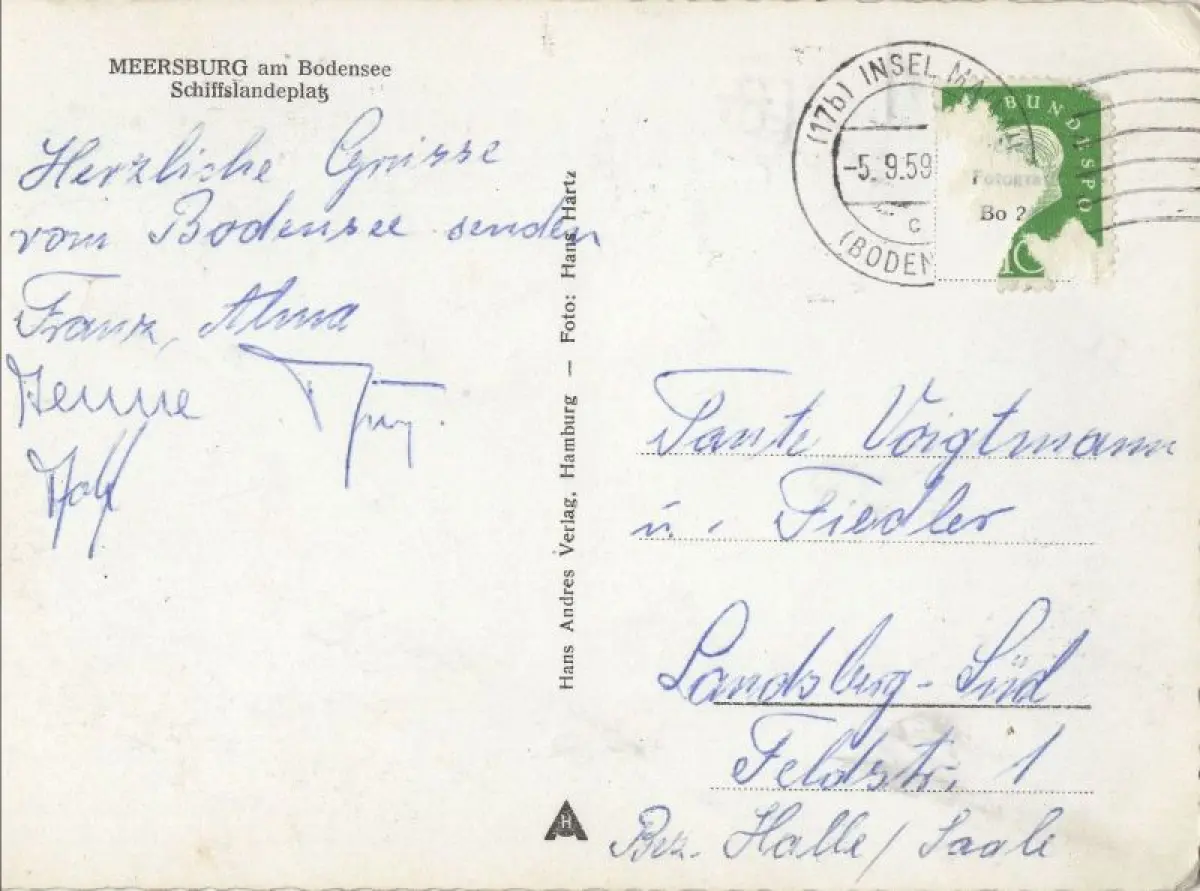 MEERSBURG am Bodensee
Schiffslandeplatz
Herzliche Grüsse
vom Bodensee senden
Franz, Alma
Henne
Rolf
Hans Andres Verlag, Hamburg — Foto: Hans Hartz
H
(17b) INSEL MA
-5. 9.59
c
(BODEN
BUNDESPO
Bo 2
10
Tante Voigtmann
u. Fiedler
Landsberg-Süd
Feldstr. 1
Bez. Halle / Saale